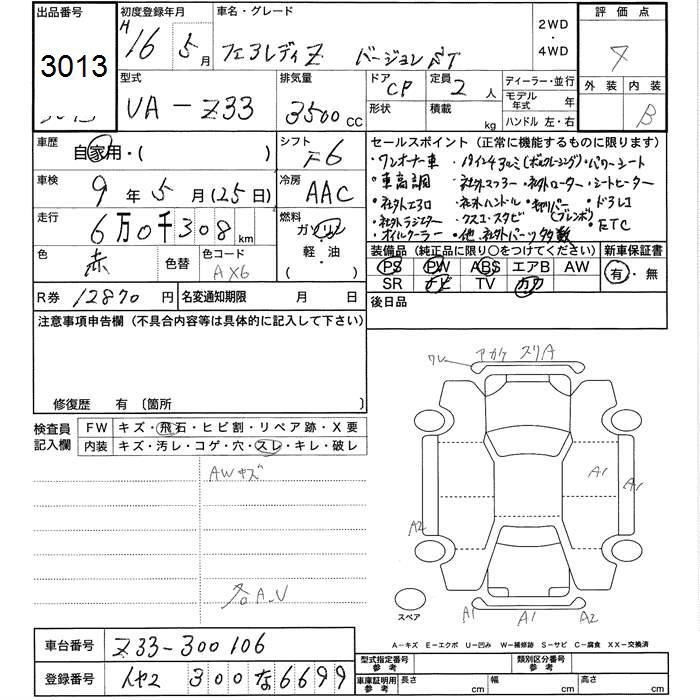 出品番号 初度登録年月 車名・グレード 2WD・4WD 評価点
3013 H16 5月 フェアレディZ バージョンST
外装 内装
B
型式 排気量 ドア 定員 ディーラー・並行
UA-Z33 3500CC CP 2人 モデル年式 年
形状 積載 kg ハンドル 左・右
車歴 自家用・( ) シフト F6
セールスポイント(正常に機能するものに限ります)
・ワンオーナー車 ・パワーシート
・車高調 ・社外マフラー・社外ローター・シートヒーター
・社外エアロ ・社外ハンドル・キャリパー ・ドラレコ
・社外ラジエター ・クスコ・スタビ (ブレンボ) ・ETC
・オイルクーラー ・他、社外パーツ多数
車検 9年5月(25日) 冷房 AAC
走行 6万0千308km 燃料 ガソリン・軽・油 ( )
色 赤 色替 色コード AX6
装備品(純正品に限り○をつけてください) 新車保証書
PS PW ABS エアB AW 有・無
SR ナビ TV カワ
R券 12870円 名変通知期限 月 日 後日品
注意事項申告欄(不具合内容等は具体的に記入して下さい)
修復歴 有 〔箇所 〕
検査員記入欄 FW キズ・飛石・ヒビ割・リペア跡・X要
内装 キズ・汚レ・コゲ・穴・スレ・キレ・破レ
AWキズ
各A.U
ワレ アカケ スリA
A1 A1
A2 A2
スペア A1 A1 A2
A-キズ E-エクボ U-凹み W-補修跡 S-サビ C-腐食 XX-交換済
車台番号 Z33-300106
型式指定番号 参考 類別区分番号 参考
登録番号 300な6699
車庫証明用参考 長さ cm 幅 cm 高さ cm